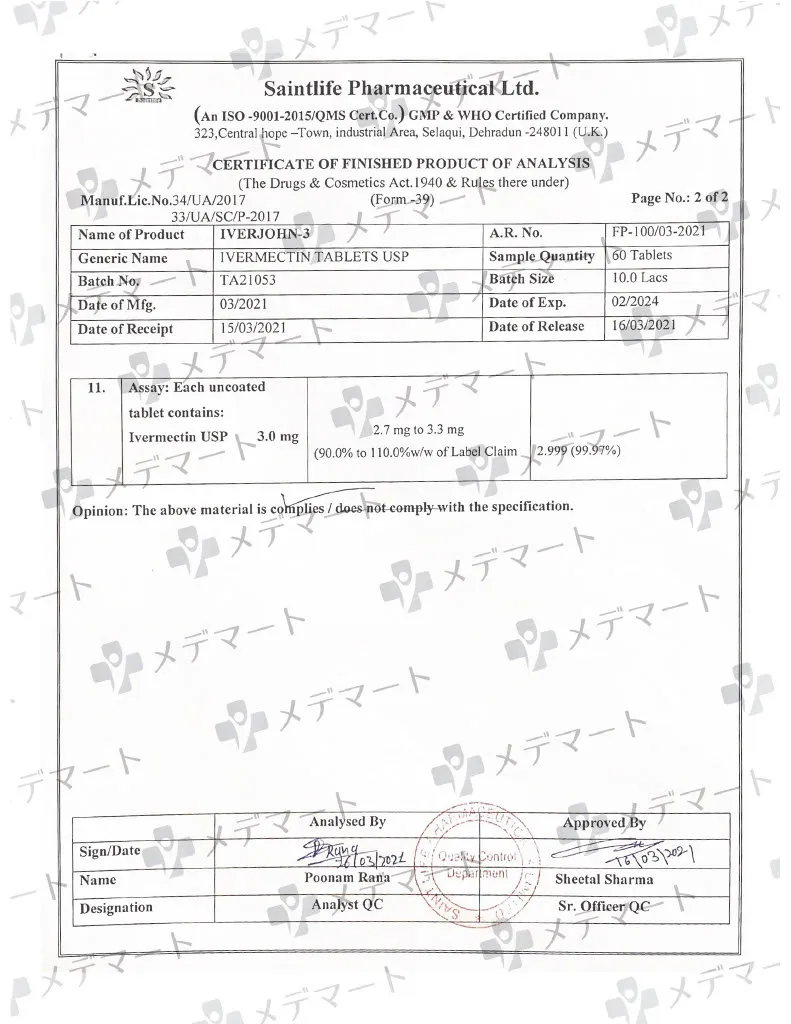 Saintlife
Saintlife Pharmaceutical Ltd.
(An ISO -9001-2015/QMS Cert.Co.) GMP & WHO Certified Company.
323,Central hope –Town, industrial Area, Selaqui, Dehradun -248011 (U.K.)
CERTIFICATE OF FINISHED PRODUCT OF ANALYSIS
(The Drugs & Cosmetics Act.1940 & Rules there under)
Manuf.Lic.No.34/UA/2017 (Form -39) Page No.: 2 of 2
33/UA/SC/P-2017
Name of Product IVERJOHN-3 A.R. No. FP-100/03-2021
Generic Name IVERMECTIN TABLETS USP Sample Quantity 60 Tablets
Batch No. TA21053 Batch Size 10.0 Lacs
Date of Mfg. 03/2021 Date of Exp. 02/2024
Date of Receipt 15/03/2021 Date of Release 16/03/2021
11. Assay: Each uncoated
tablet contains:
Ivermectin USP 3.0 mg 2.7 mg to 3.3 mg
(90.0% to 110.0%w/w of Label Claim 2.999 (99.97%)
Opinion: The above material is complies / does not comply with the specification.
Analysed By Approved By
Sign/Date 16/03/2021 16/03/2021
Name Poonam Rana Sheetal Sharma
Designation Analyst QC Sr. Officer QC
SAINT LIFE PHARMACEUTICAL LIMITED
Quality Control
Department
メデマート